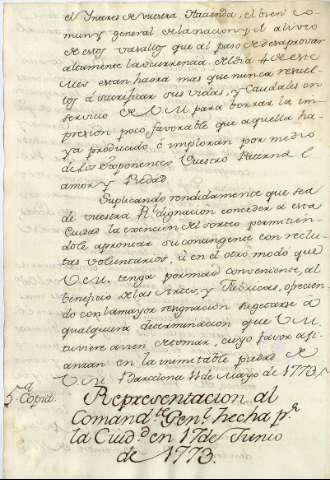 el Ynteres de vuestra Hacienda, el bien co-
mun y general de la nacion y el alivio
de estos vasallos que al paso de desaprovar
altamente la ocurrencia del dia 4 de este
Mes estan haora mas que nunca resuel-
tos â sacrificar sus vidas, y caudales en
servicio de V M para borrar la im-
presion poco favorable que aquella ha-
ya producido, è imploran por medio
de los Exponentes Vuestro Paternal
amor y Piedad.
Suplicando rendidamente que sea
de vuestra Rl dignacion conceder a esta
Ciudad la exencion del sorteo permitien-
dole aprontar su contingente con reclu-
tas voluntarios, ù en el otro modo que
V M. tenga por mas conveniente, al
beneficio de las Artes, y Fabricas, ofrecien-
do con la mayor resignacion sugetarse â
qualquiera determinacion que V M.
tuviere a bien tomar, cuyo favor afi-
anzan en la inimitable piedad de
V M. Barcelona 11 de Mayo de 1773
5.a Copia
Representacion al
Comand.te Gen.l hecha p.r
la Ciud.d en 17 de Junio
de 1773.